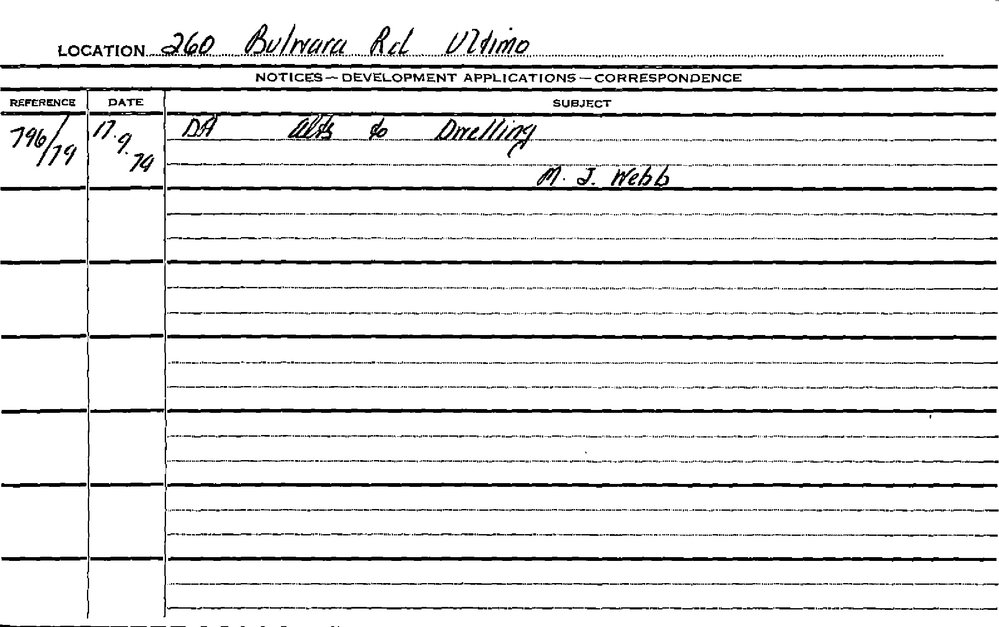 LOCATION 260 Bulwara Rd Ultimo
NOTICES—DEVELOPMENT APPLICATIONS—CORRESPONDENCE
REFERENCE DATE SUBJECT
796/79 17.9.79 DA alts to Dwelling
M. J. Webb